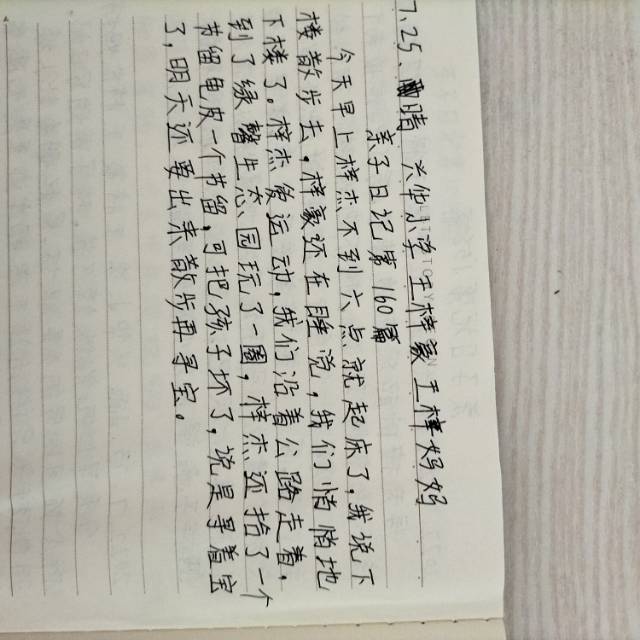 7.25. 晴 兴华小学王梓豪王梓妈妈
亲子日记第160篇
今天早上梓杰不到六点就起床了,我说下
楼散步去,梓豪还在睡觉,我们悄悄地
下楼了。梓杰爱运动,我们沿着公路走着,
到了绿馨生态园玩了一圈,梓杰还拾了一个
节留龟皮一个节留,可把孩子坏了,说是寻着宝
了,明天还要出来散步再寻宝。